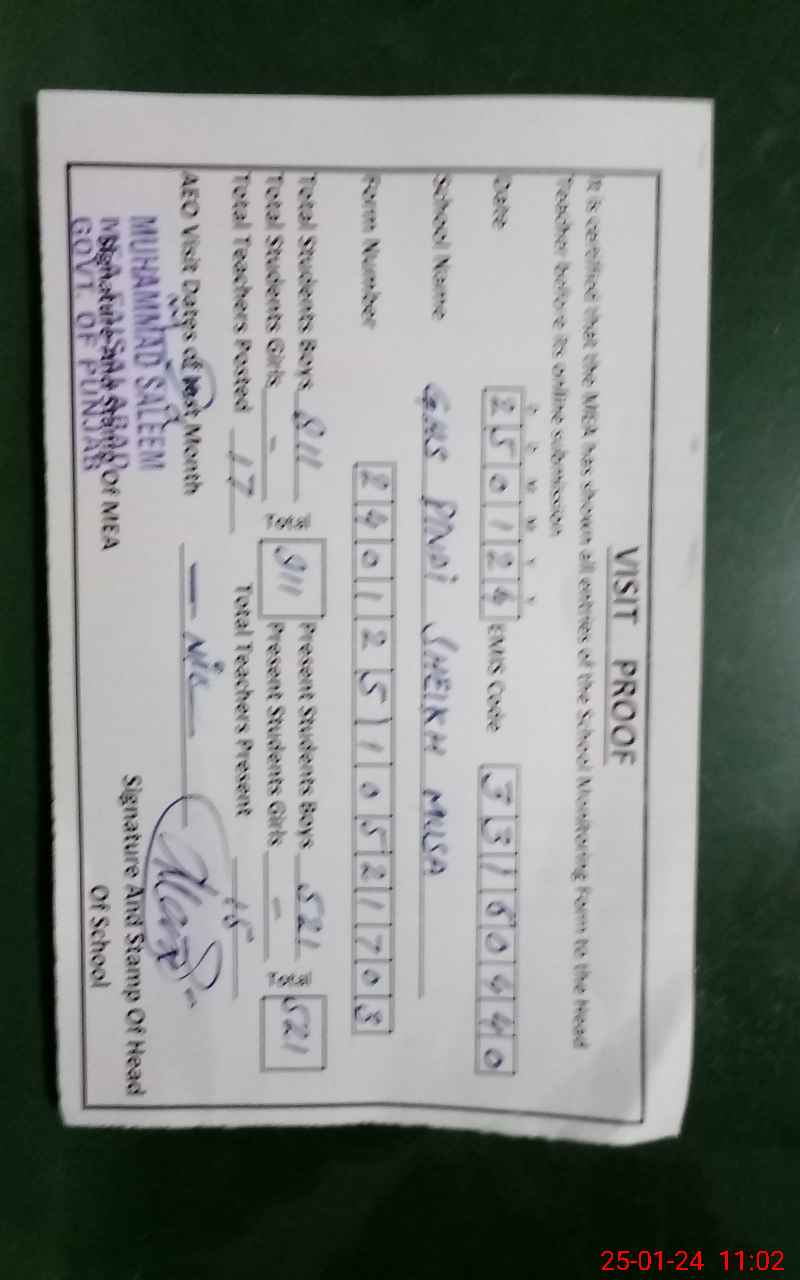 VISIT PROOF
It is certified that the MEA has shown all entries of the School Monitoring Form to the Head
Teacher before its online submission
D D M M Y Y
Date 250124 EMIS Code 33160440
School Name GHS PINDI SHEIKH MUSA
Form Number 2401251052170
Total Students Boys 811 811 Present Students Boys 521 521
Total Students Girls - Present Students Girls -
Total Teachers Posted 17 Total Teachers Present 15
AEO Visit Dates of last Month — Nil —
MUHAMMAD SALEEM
MEA FAISALABAD
GOVT. OF PUNJAB
Signature And Stamp Of MEA
Signature And Stamp Of Head
Of School
25-01-24 11:02